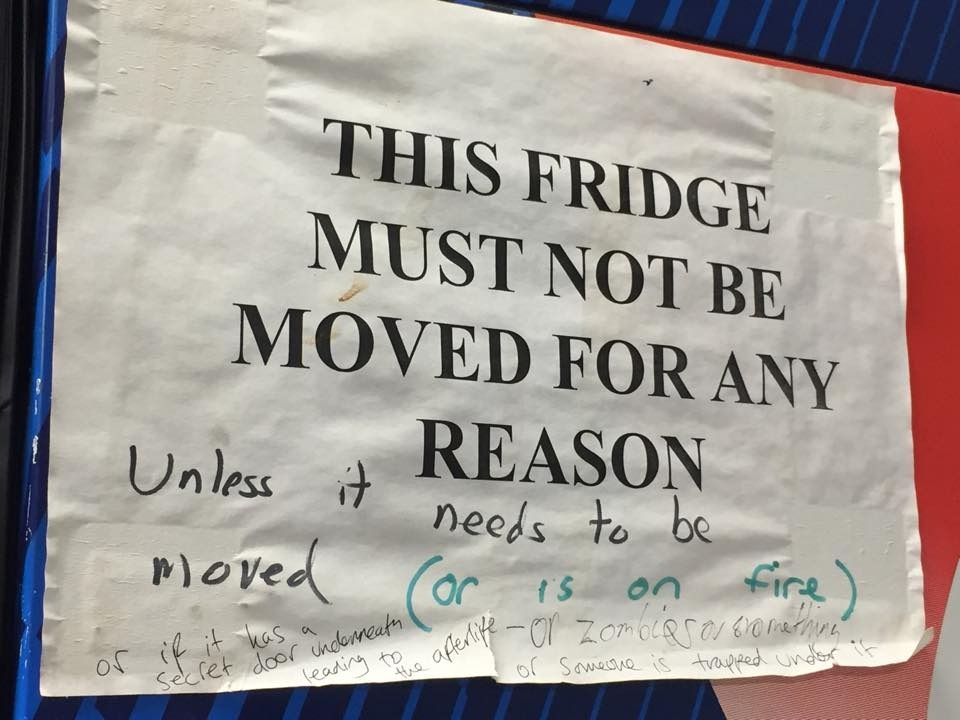 THIS FRIDGE
MUST NOT BE
MOVED FOR ANY
REASON
Unless it needs to be
moved (or is on fire)
or if it has a
secret door underneath
leading to
the afterlife - or zombies or something
or someone is trapped under it